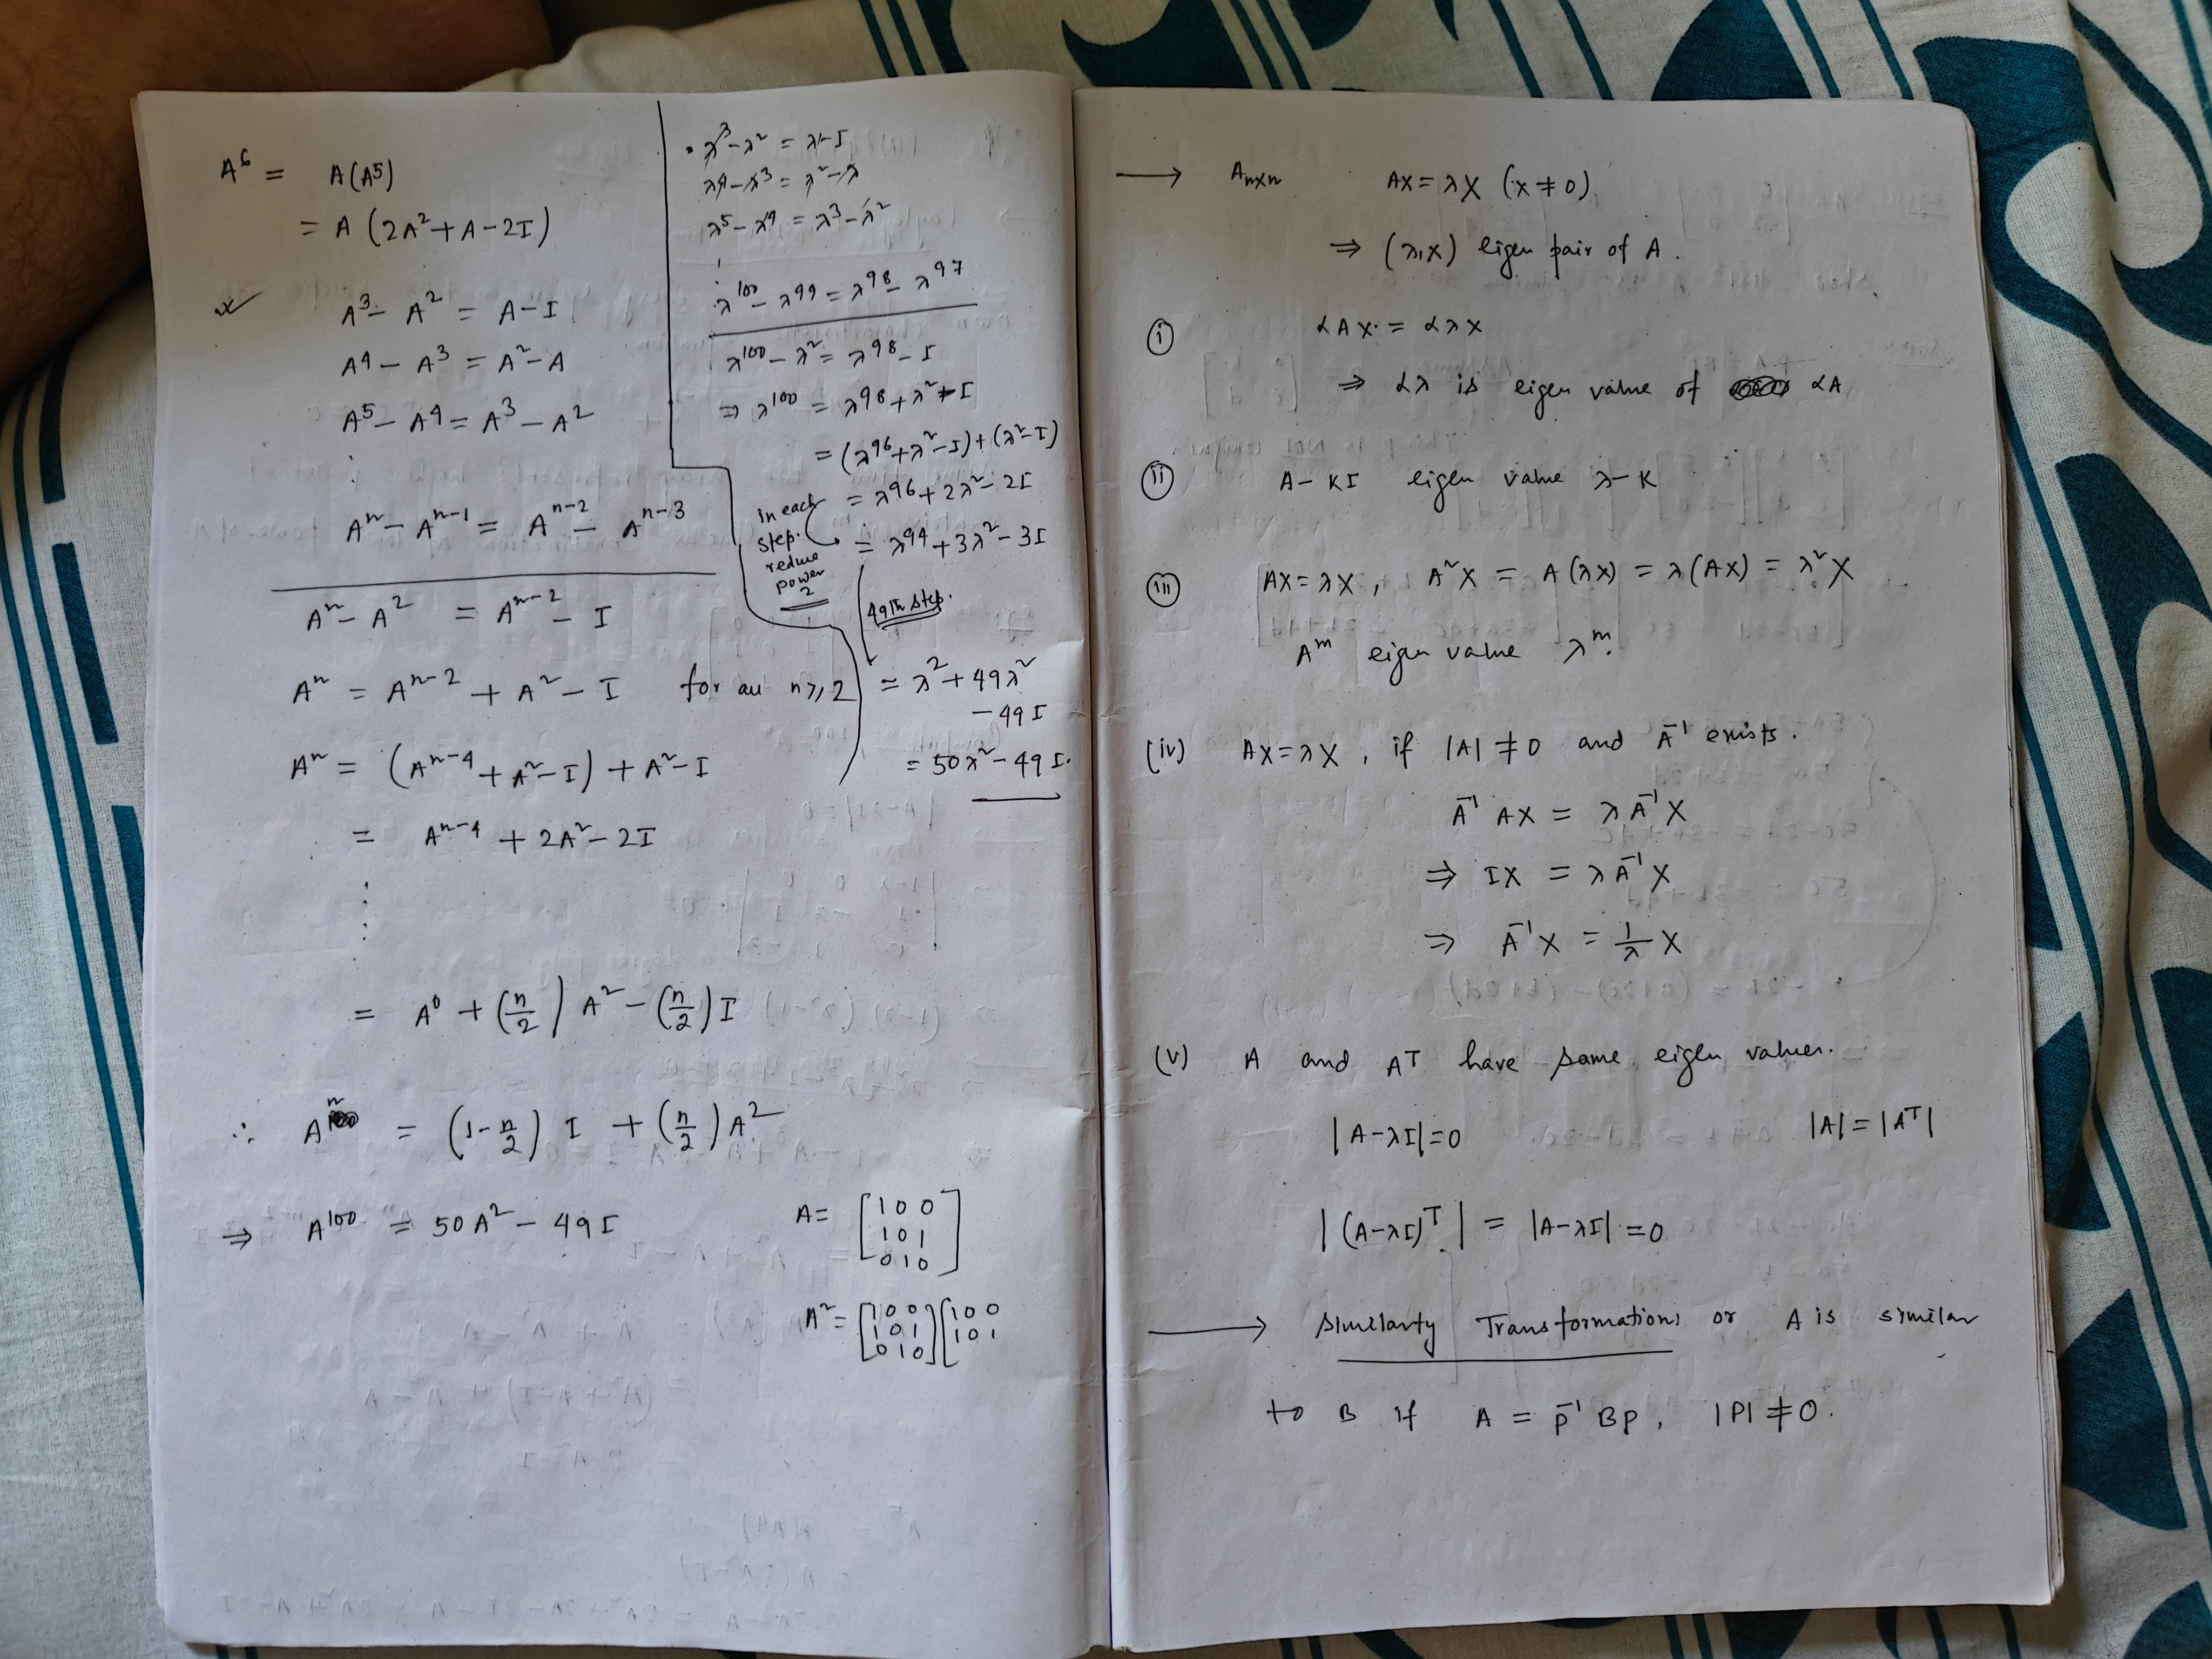 A⁶ = A(A⁵)
= A (2A² + A - 2I)
A³ - A² = A - I
A⁴ - A³ = A² - A
A⁵ - A⁴ = A³ - A²
⋮
Aⁿ - Aⁿ⁻¹ = Aⁿ⁻² - Aⁿ⁻³
Aⁿ - A² = Aⁿ⁻² - I
Aⁿ = Aⁿ⁻² + A² - I for all n ≥ 2
Aⁿ = (Aⁿ⁻⁴ + A² - I) + A² - I
= Aⁿ⁻⁴ + 2A² - 2I
⋮
= A⁰ + (n/2) A² - (n/2) I
∴ Aⁿ = (1 - n/2) I + (n/2) A²
⇒ A¹⁰⁰ = 50A² - 49I
A = [1 0 0
1 0 1
0 1 0]
A² = [1 0 0 ] [1 0 0
1 0 1 ] [1 0 1
0 1 0]
• λ³ - λ² = λ - I
λ⁴ - λ³ = λ² - λ
λ⁵ - λ⁴ = λ³ - λ²
⋮
λ¹⁰⁰ - λ⁹⁹ = λ⁹⁸ - λ⁹⁷
λ¹⁰⁰ - λ² = λ⁹⁸ - I
⇒ λ¹⁰⁰ = λ⁹⁸ + λ² - I
= (λ⁹⁶ + λ² - I) + (λ² - I)
= λ⁹⁶ + 2λ² - 2I
= λ⁹⁴ + 3λ² - 3I
in each
step.
reduce
power
2
49th step.
= λ² + 49λ²
- 49 I
= 50λ² - 49 I.
→ Aₙₓₙ AX = λX (X ≠ 0)
⇒ (λ, X) eigen pair of A.
(i) αAX = αλX
⇒ αλ is eigen value of αA
(ii) A - KI eigen value λ - K
(iii) AX = λX, A²X = A(λX) = λ(AX) = λ²X
Aᵐ eigen value λᵐ.
(iv) AX = λX, if |A| ≠ 0 and A⁻¹ exists.
A⁻¹ AX = λ A⁻¹ X
⇒ IX = λ A⁻¹ X
⇒ A⁻¹X = 1/λ X
(v) A and Aᵀ have same eigen values.
|A - λI| = 0 |A| = |Aᵀ|
|(A - λI)ᵀ| = |A - λI| = 0
→ Similarty Transformations or A is similar
to B if A = P⁻¹ BP, |P| ≠ 0.